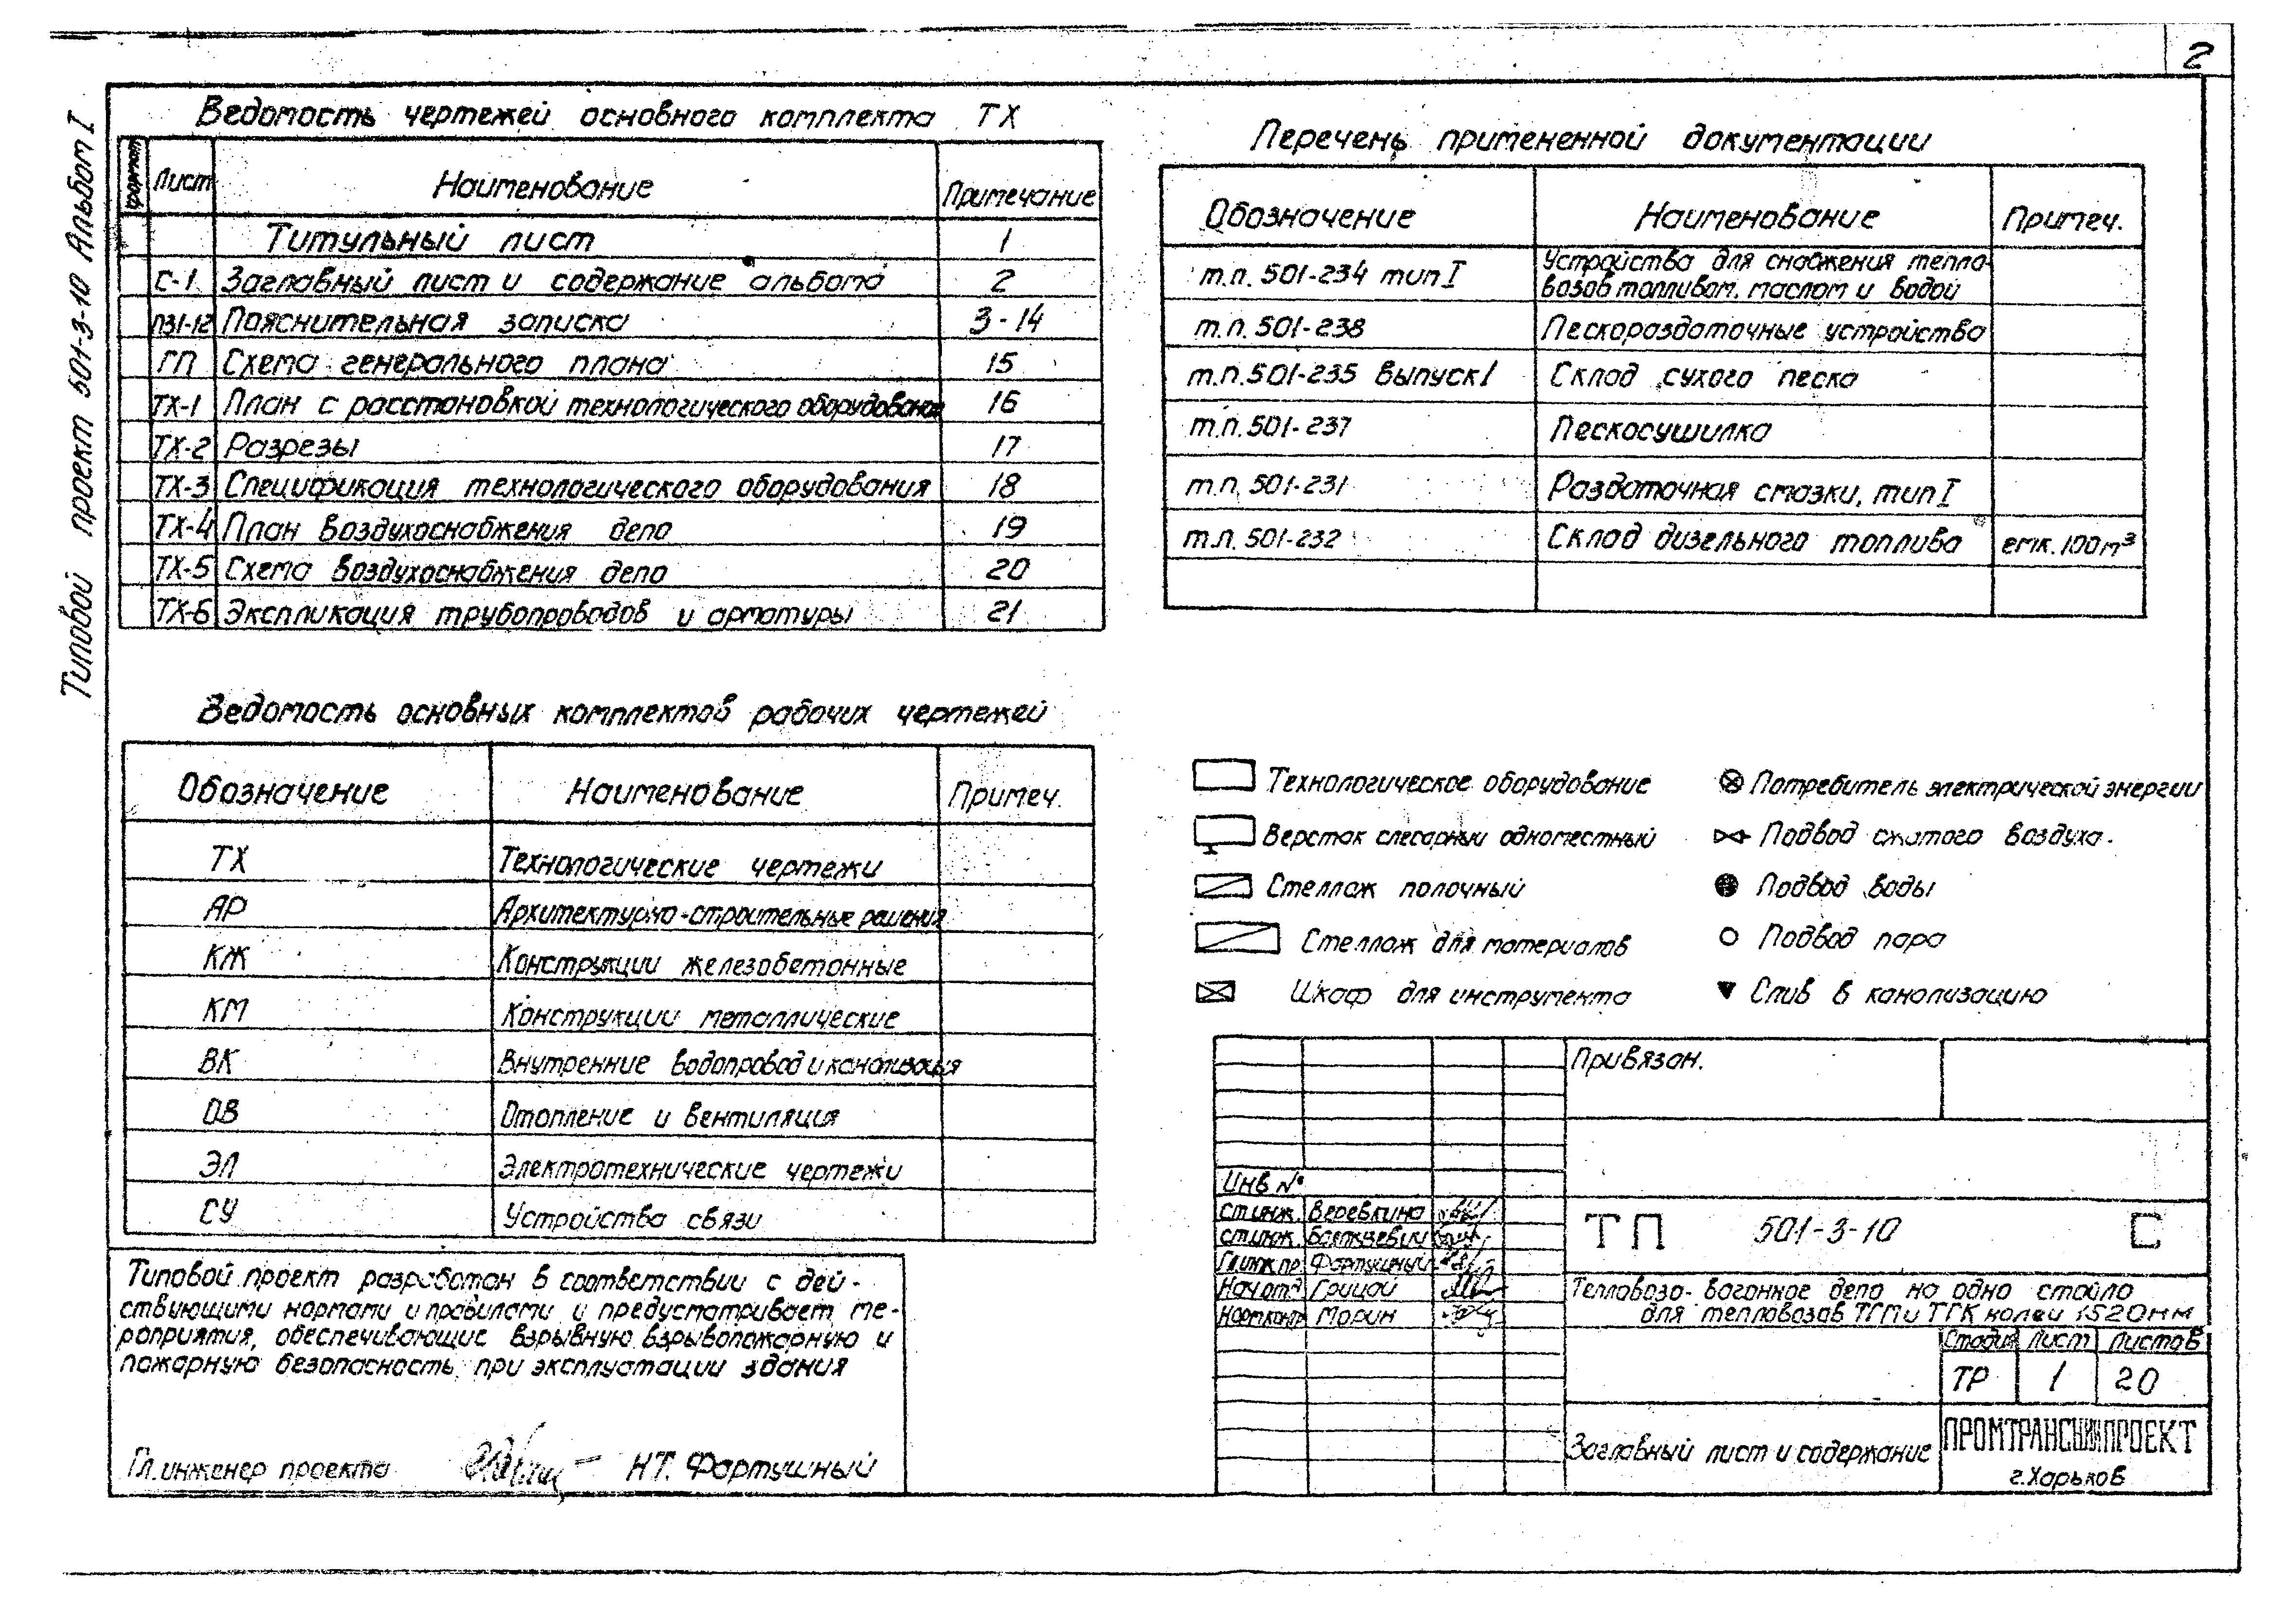 2
Типовой проект 501-3-10 Альбом I
Ведомость чертежей основного комплекта ТХ
Формат Лист Наименование Примечание
Титульный лист 1
С-1 Заглавный лист и содержание альбома 2
ПЗ1-12 Пояснительная записка 3-14
ГП Схема генерального плана 15
ТХ-1 План с расстановкой технологического оборудования 16
ТХ-2 Разрезы 17
ТХ-3 Спецификация технологического оборудования 18
ТХ-4 План воздухоснабжения депо 19
ТХ-5 Схема воздухоснабжения депо 20
ТХ-6 Экспликация трубопроводов и арматуры 21
Перечень примененной документации
Обозначение Наименование Примеч.
т.п. 501-234 тип I Устройства для снабжения тепло-
возов топливом, маслом и водой
т.п. 501-238 Пескораздаточные устройства
т.п. 501-235 выпуск I Склад сухого песка
т.п. 501-237 Пескосушилка
т.п. 501-231 Раздаточная смазки, тип I
т.п. 501-232 Склад дизельного топлива емк. 100 м³
Ведомость основных комплектов рабочих чертежей
Обозначение Наименование Примеч.
ТХ Технологические чертежи
АР Архитектурно-строительные решения
КЖ Конструкции железобетонные
КМ Конструкции металлические
ВК Внутренние водопровод и канализация
ОВ Отопление и вентиляция
ЭЛ Электротехнические чертежи
СУ Устройства связи
Технологическое оборудование
Верстак слесарный одноместный
Стеллаж полочный
Стеллаж для материалов
Шкаф для инструмента
Потребитель электрической энергии
Подвод сжатого воздуха.
Подвод воды
Подвод пара
Слив в канализацию
Типовой проект разработан в соответствии с дей-
ствующими нормами и правилами и предусматривает ме-
роприятия, обеспечивающие взрывную, взрывопожарную и
пожарную безопасность при эксплуатации здания
Гл. инженер проекта Н.Т. Фартушный
Привязан.
Инв №
ст.инж. Веревкина
ст.инж.
Гл.инж.пр. Фартушный
Нач.отд. Грицай
Норм.контр Морин
ТП 501-3-10 С
Тепловозо-вагонное депо на одно стойло
для тепловозов ТГМ и ТГК колеи 1520 мм
Стадия Лист Листов
ТР 1 20
Заглавный лист и содержание
ПРОМТРАНСНИИПРОЕКТ
г. Харьков